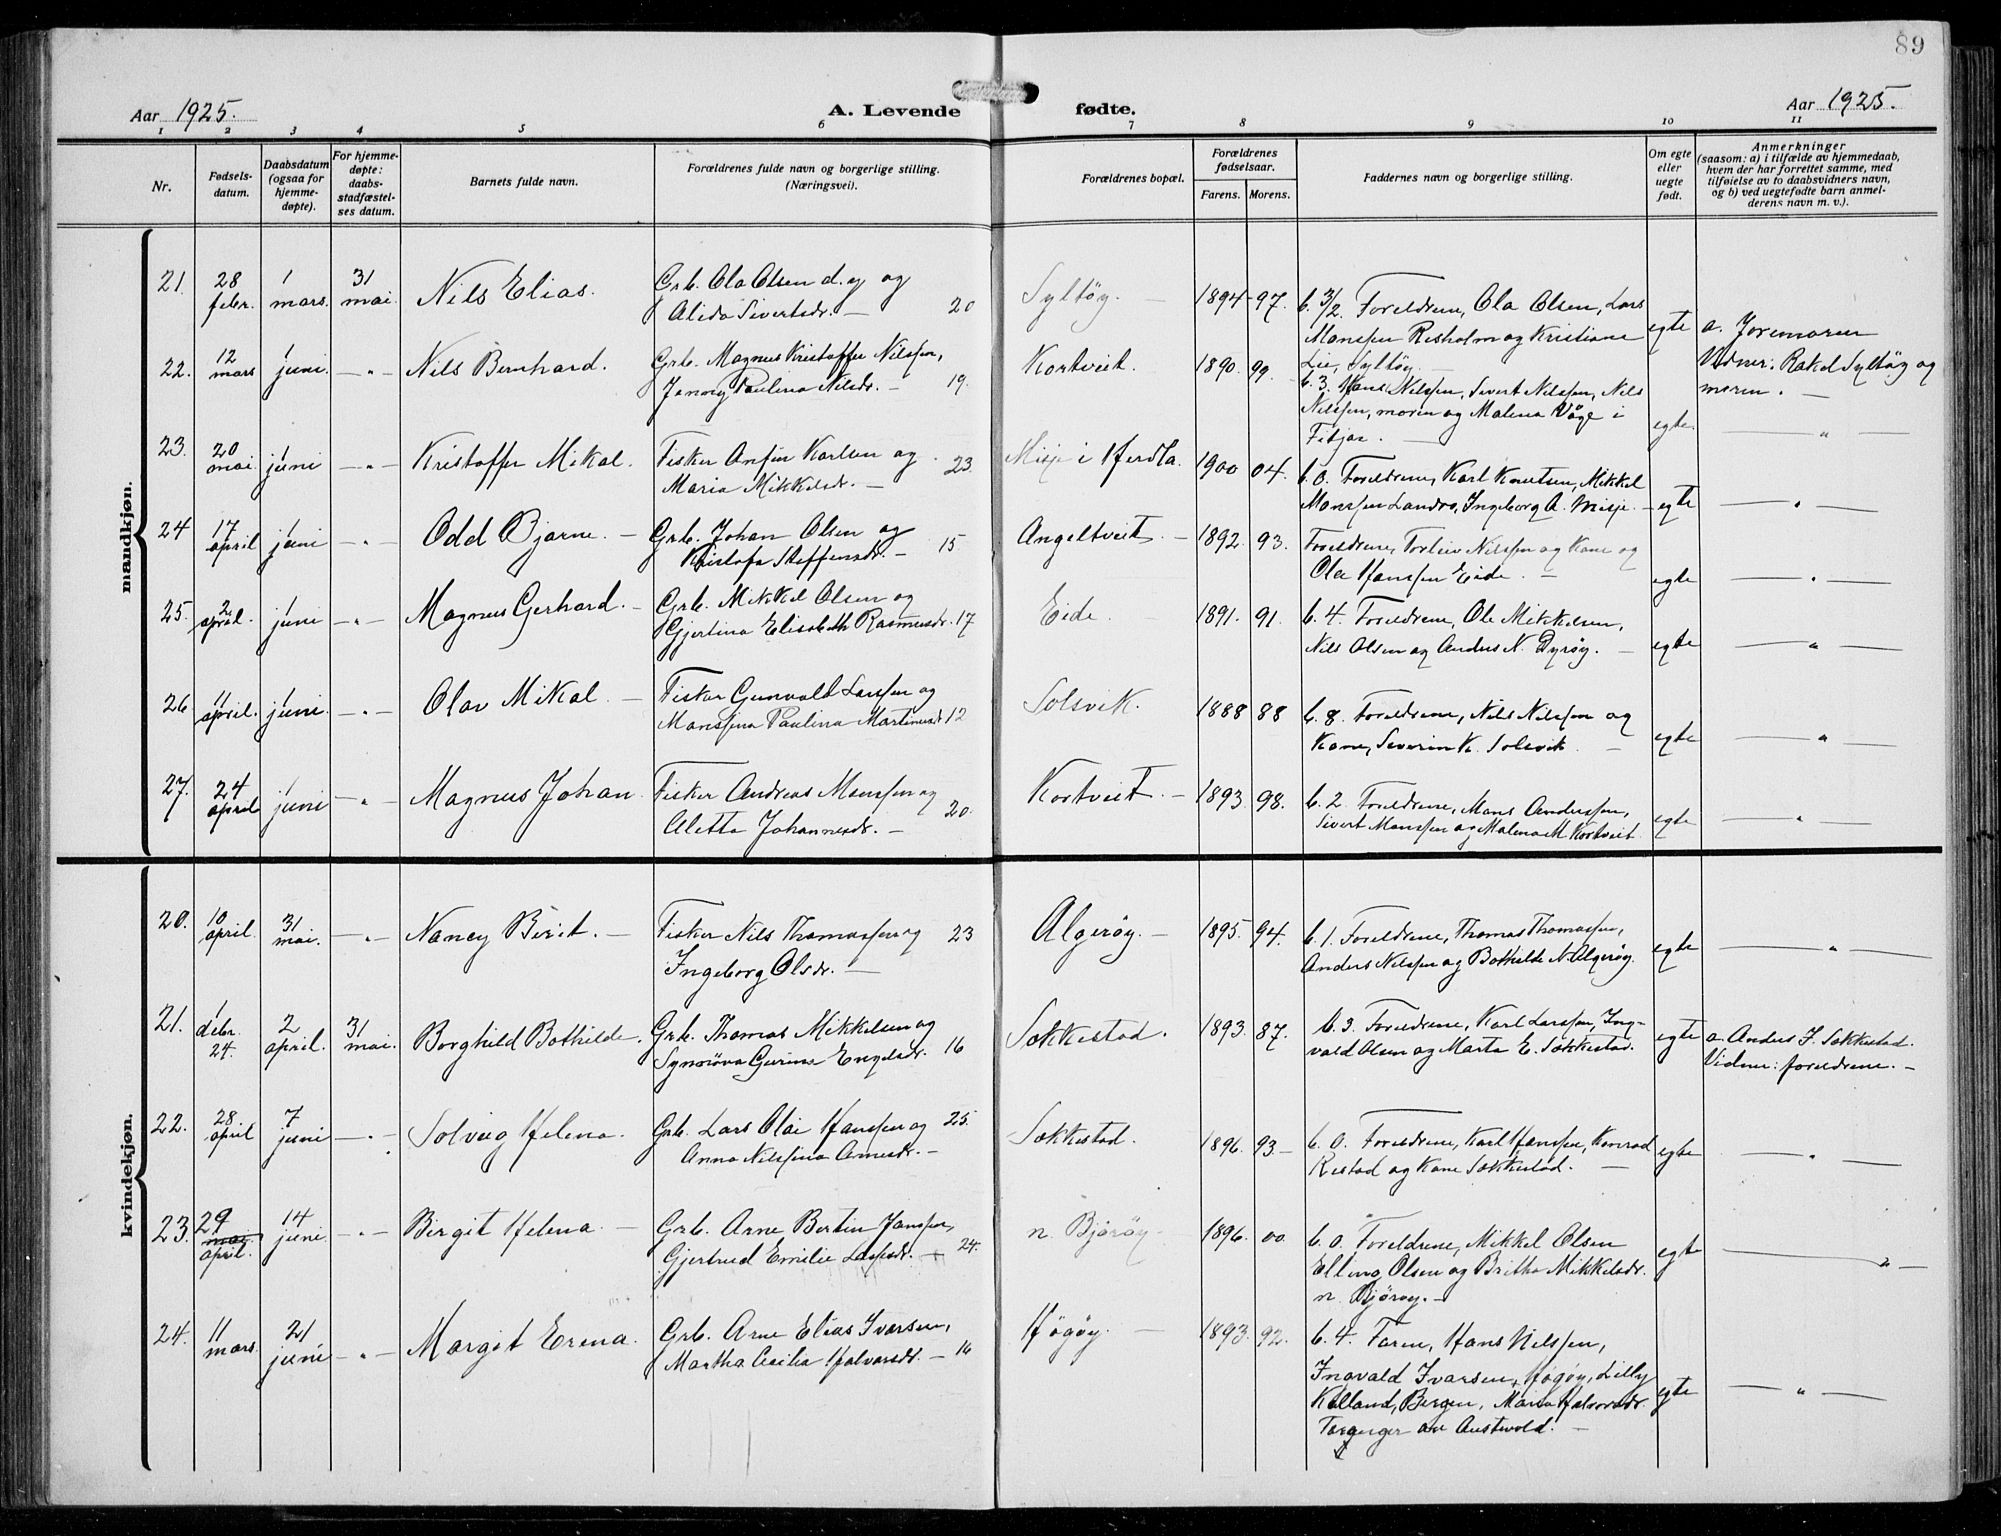 89
Aar 1925.
A. Levende fødte.
Aar 1925.
1 2 3 4 5 6 7 8 9 10 11
Nr.
Fødsels-
datum.
Daabsdatum
(ogsaa for
hjemme-
døpte).
For hjemme-
døpte:
daabs-
stadfæstel-
ses datum.
Barnets fulde navn.
Forældrenes fulde navn og borgerlige stilling.
(Næringsvei).
Forældrenes bopæl.
Forældrenes
fødselsaar.
Farens. Morens.
Faddernes navn og borgerlige stilling.
Om egte
eller
uegte
født.
Anmerkninger
(saasom: a) i tilfælde av hjemmedaab,
hvem der har forrettet samme, med
tilføielse av to daabsvidners navn,
og b) ved uegtefødte barn anmel-
derens navn m. v.).
mandkjøn.
21. 28 febr. 1 mars. 31 mai. Nils Elias. Grb. Ola Olsen d.y og
Alida Sivertsdr. — 20 Syltøy. — 1894-97. b. 3/2. Foreldrene, Ola Olsen, Lars
Monssen Risholm og Kristiane
Lie, Syltøy. egte a. Joremoren
Vidner: Rakel Syltøy og
moren. —
22. 12 mars 1 juni. — " — Nils Bernhard. Grb. Magnus Kristoffer Nilssen,
Janny Paulina Nilsdr. — 19. Kortveit. 1890. 99. b. 3. Hans Nilssen, Sivert Nilssen, Nils
Nilssen, moren og Malena Våge i
Fitjar. — egte. — " —
23. 20 mai 1 juni — " — Kristoffer Mikal. Fisker Anfin Karlsen og
Maria Mikkelsdr. — 23. Misje i Herdla. 1900 04. b. 0. Foreldrene, Karl Knutsen, Mikkel
Monssen Landro, Ingeborg A. Misje. — egte — " —
24 17 april 1 juni — " — Odd Bjarne. — Grb. Johan Olsen og
Kristofa Steffensdr. — 15 Angeltveit. — 1892. 93. Foreldrene, Torleiv Nilssen og Kone og
Ola Hanssen Eide. — egte — " —
25. 2 april. 1 juni — " — Magnus Gerhard. — Grb. Mikkel Olsen og
Gjertina Elisabeth Rasmusdr. 17 Eide. — 1891. 91. b. 4. Foreldrene, Ole Mikkelsen,
Nils Olsen og Anders N. Dyrøy. — egte — " —
26 11 april. 1 juni. — " — Olav Mikal — Fisker Gunvald Larssen og
Monssina Paulina Martinusdr 12 Solsvik. 1888 88 b. 8. Foreldrene, Nils Nilssen og
Kone, Severin K. Solsvik. — egte — " —
27. 24 april 1 juni — " — Magnus Johan Fisker Andreas Monssen og
Aletta Johannesdr. — 20. Kortveit. — 1893 98. b. 2. Foreldrene, Mons Anderssen,
Sivert Monssen og Malena M. Kortveit. egte — " —
kvindekjøn.
20. 10 april. 31 mai. — " — Nancy Berit. — Fisker Nils Thomassen og
Ingeborg Olsdr. — 23 Algerøy. — 1895. 94. b. 1. Foreldrene, Thomas Thomassen,
Anders Nilssen og Bothilde N. Algerøy. egte — " —
21. 1 debr. 24. 2 april. 31 mai. Borghild Bothilde. Grb. Thomas Mikkelsen og
Synnøva Gurine Engelsdr. 16 Søkkestad. 1893. 87. b. 3. Foreldrene, Karl Larssen, Ing-
vald Olsen og Marta E. Søkkestad. egte a. Anders J. Søkkestad.
Vidner: foreldrene. —
22. 28 april 7 juni — " — Solveig Helena. Grb. Lars Olai Hanssen og
Anna Nilssina Arnesdr. — 25. Søkkestad. 1896. 93.— b. 0. Foreldrene, Karl Hanssen, Konrad
Restad og Kone Søkkestad. — egte — " —
23. 29 april. 14 juni — " — Birgit Helena. — Grb. Arne Bertin Janssen,
Gjertrud Emilie Larsdr. — 24. n. Bjørøy — 1896. 00. b. 0. Foreldrene, Mikkel Olsen
Elling Olsen og Britha Mikkelsdr.
n. Bjørøy. — egte — " —
24. 11 mars 21 juni — " — Margit Erena. Grb. Arne Elias Iversen,
Martha Cecilia Halvorsdr. — 16 Høgøy. — 1893. 92. b. 4. Faren, Hans Nilssen,
Ingvald Ivarsen, Høgøy, Lilly
Kolland, Bergen, Maria Halvorsdr.
Torgeiger av Austevold. — egte — " —